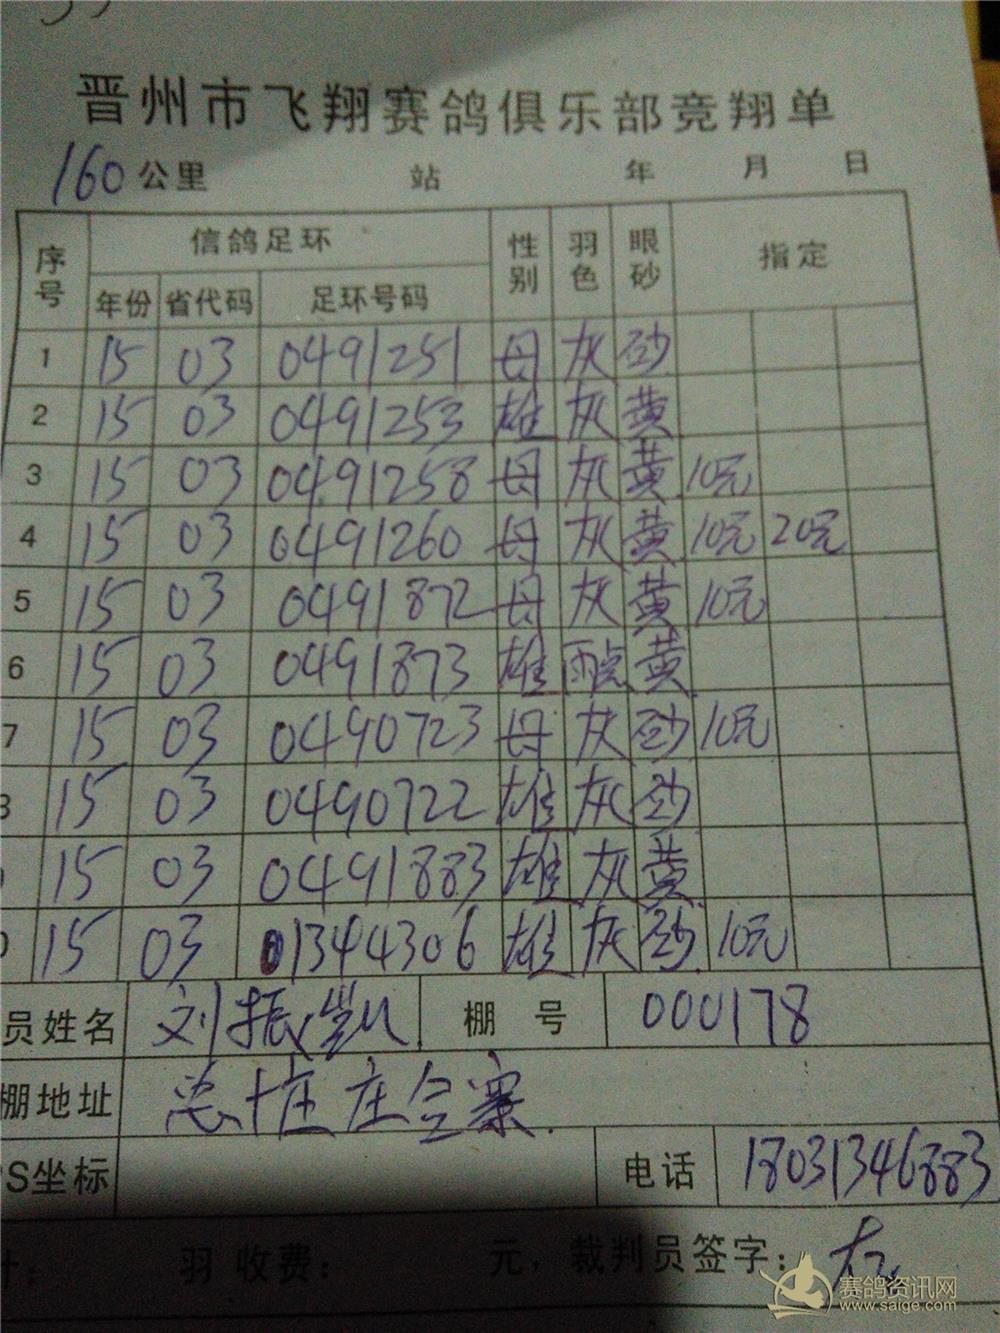 晋州市飞翔赛鸽俱乐部竞翔单
160公里 站 年 月 日
序号 信鸽足环 性别 羽色 眼砂 指定
年份 省代码 足环号码
1 15 03 0491251 母 灰 砂
2 15 03 0491253 雄 灰 黄
3 15 03 0491258 母 灰 黄 10元
4 15 03 0491260 母 灰 黄 10元 20元
5 15 03 0491872 母 灰 黄 10元
6 15 03 0491873 雄 雨点 黄
7 15 03 0490723 母 灰 砂 10元
15 03 0490722 雄 灰 砂
15 03 0491883 雄 灰 黄
15 03 01344306 雄 灰 砂 10元
员姓名 刘振凯 棚号 000178
棚地址 总十庄 庄合寨
S坐标 电话 18031346883
羽 收费： 元，裁判员签字：
赛鸽资讯网
www.saige.com